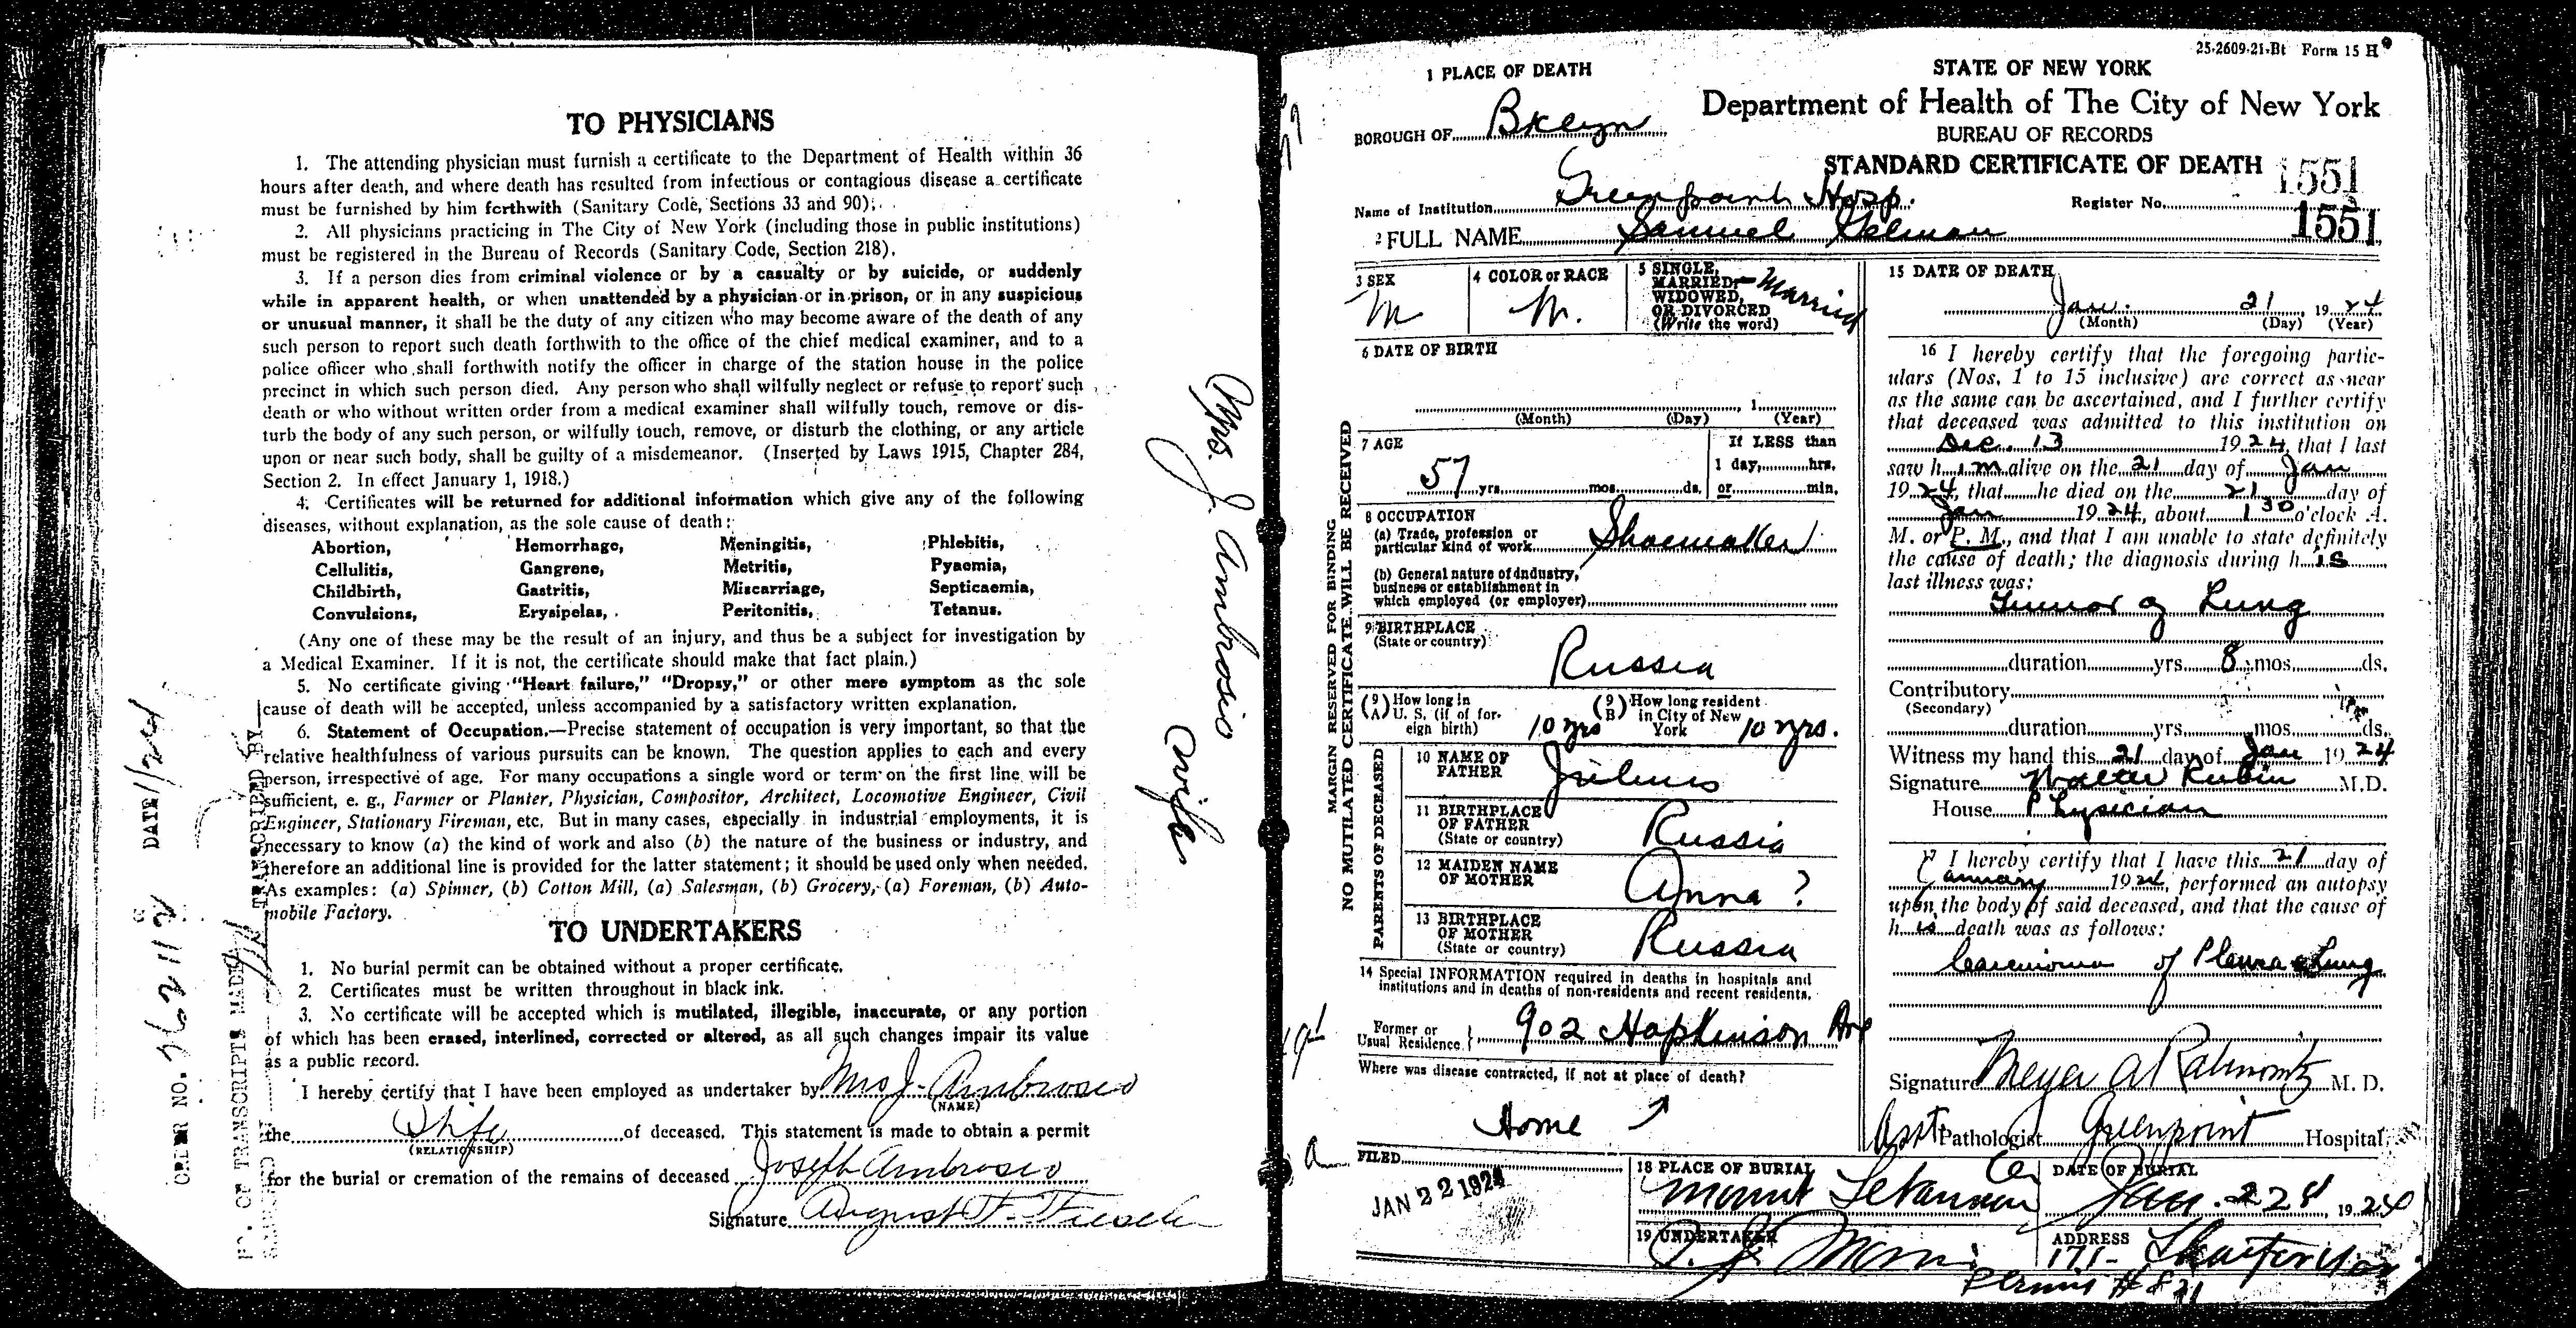 TO PHYSICIANS
1. The attending physician must furnish a certificate to the Department of Health within 36
hours after death, and where death has resulted from infectious or contagious disease a certificate
must be furnished by him forthwith (Sanitary Code, Sections 33 and 90);
2. All physicians practicing in The City of New York (including those in public institutions)
must be registered in the Bureau of Records (Sanitary Code, Section 218).
3. If a person dies from criminal violence or by a casualty or by suicide, or suddenly
while in apparent health, or when unattended by a physician or in prison, or in any suspicious
or unusual manner, it shall be the duty of any citizen who may become aware of the death of any
such person to report such death forthwith to the office of the chief medical examiner, and to a
police officer who shall forthwith notify the officer in charge of the station house in the police
precinct in which such person died. Any person who shall wilfully neglect or refuse to report such
death or who without written order from a medical examiner shall wilfully touch, remove or dis-
turb the body of any such person, or wilfully touch, remove, or disturb the clothing, or any article
upon or near such body, shall be guilty of a misdemeanor. (Inserted by Laws 1915, Chapter 284,
Section 2. In effect January 1, 1918.)
4. Certificates will be returned for additional information which give any of the following
diseases, without explanation, as the sole cause of death:
Abortion, Hemorrhage, Meningitis, Phlebitis,
Cellulitis, Gangrene, Metritis, Pyaemia,
Childbirth, Gastritis, Miscarriage, Septicaemia,
Convulsions, Erysipelas, Peritonitis, Tetanus.
(Any one of these may be the result of an injury, and thus be a subject for investigation by
a Medical Examiner. If it is not, the certificate should make that fact plain.)
5. No certificate giving "Heart failure," "Dropsy," or other mere symptom as the sole
cause of death will be accepted, unless accompanied by a satisfactory written explanation.
6. Statement of Occupation.—Precise statement of occupation is very important, so that the
relative healthfulness of various pursuits can be known. The question applies to each and every
person, irrespective of age. For many occupations a single word or term on the first line will be
sufficient, e. g., Farmer or Planter, Physician, Compositor, Architect, Locomotive Engineer, Civil
Engineer, Stationary Fireman, etc. But in many cases, especially in industrial employments, it is
necessary to know (a) the kind of work and also (b) the nature of the business or industry, and
therefore an additional line is provided for the latter statement; it should be used only when needed.
As examples: (a) Spinner, (b) Cotton Mill, (a) Salesman, (b) Grocery, (a) Foreman, (b) Auto-
mobile Factory.
TO UNDERTAKERS
1. No burial permit can be obtained without a proper certificate.
2. Certificates must be written throughout in black ink.
3. No certificate will be accepted which is mutilated, illegible, inaccurate, or any portion
of which has been erased, interlined, corrected or altered, as all such changes impair its value
as a public record.
I hereby certify that I have been employed as undertaker by Mrs J. Ambrosio
(NAME)
the Wife of deceased. This statement is made to obtain a permit
(RELATIONSHIP)
for the burial or cremation of the remains of deceased Joseph Ambrosio
Signature August F.
ORDER NO. DATE
NO. OF TRANSCRIPTS MADE
TRANSCRIBED BY
Mrs. J. Ambrosio
wife
25-2609-21-Bt Form 15 H
1 PLACE OF DEATH
STATE OF NEW YORK
Department of Health of The City of New York
BOROUGH OF Bklyn
BUREAU OF RECORDS
STANDARD CERTIFICATE OF DEATH 1551
Name of Institution Greenpoint Hosp.
Register No. 1551
2 FULL NAME Samuel Gelman
3 SEX
M
4 COLOR or RACE
W.
5 SINGLE,
MARRIED,
WIDOWED,
OR DIVORCED
(Write the word)
Married
6 DATE OF BIRTH
(Month) (Day) (Year)
7 AGE
57 yrs. mos. ds.
If LESS than
1 day, hrs.
or min.
8 OCCUPATION
(a) Trade, profession or
particular kind of work Shoemaker
(b) General nature of industry,
business or establishment in
which employed (or employer)
9 BIRTHPLACE
(State or country)
Russia
(9 A) How long in
U. S. (if of for-
eign birth) 10 yrs
(9 B) How long resident
in City of New
York 10 yrs.
PARENTS OF DECEASED
10 NAME OF
FATHER Julius
11 BIRTHPLACE
OF FATHER
(State or country) Russia
12 MAIDEN NAME
OF MOTHER Anna ?
13 BIRTHPLACE
OF MOTHER
(State or country) Russia
14 Special INFORMATION required in deaths in hospitals and
institutions and in deaths of non-residents and recent residents.
Former or
Usual Residence 902 Hopkinson Ave
Where was disease contracted, if not at place of death?
Home
FILED
JAN 22 1924
MARGIN RESERVED FOR BINDING
NO MUTILATED CERTIFICATE WILL BE RECEIVED
15 DATE OF DEATH
Jan. 21, 1924
(Month) (Day) (Year)
16 I hereby certify that the foregoing partic-
ulars (Nos. 1 to 15 inclusive) are correct as near
as the same can be ascertained, and I further certify
that deceased was admitted to this institution on
Dec. 13 1924, that I last
saw him alive on the 21 day of Jan
1924, that he died on the 21 day of
Jan 1924, about 1 30 o'clock A.
M. or P. M., and that I am unable to state definitely
the cause of death; the diagnosis during his
last illness was:
Tumor of Lung
duration yrs. 8 mos. ds.
Contributory
(Secondary)
duration yrs. mos. ds.
Witness my hand this 21 day of Jan 1924
Signature Walter Rubin M.D.
House Physician
17 I hereby certify that I have this 21 day of
January 1924, performed an autopsy
upon the body of said deceased, and that the cause of
his death was as follows:
Carcinoma of Pleura & Lung
Signature Meyer A Rabinowitz M. D.
Asst Pathologist Greenpoint Hospital.
18 PLACE OF BURIAL
Mount Lebanon Cem
DATE OF BURIAL
Jan. 22, 1924
19 UNDERTAKER
ADDRESS
171-
Permit # 821